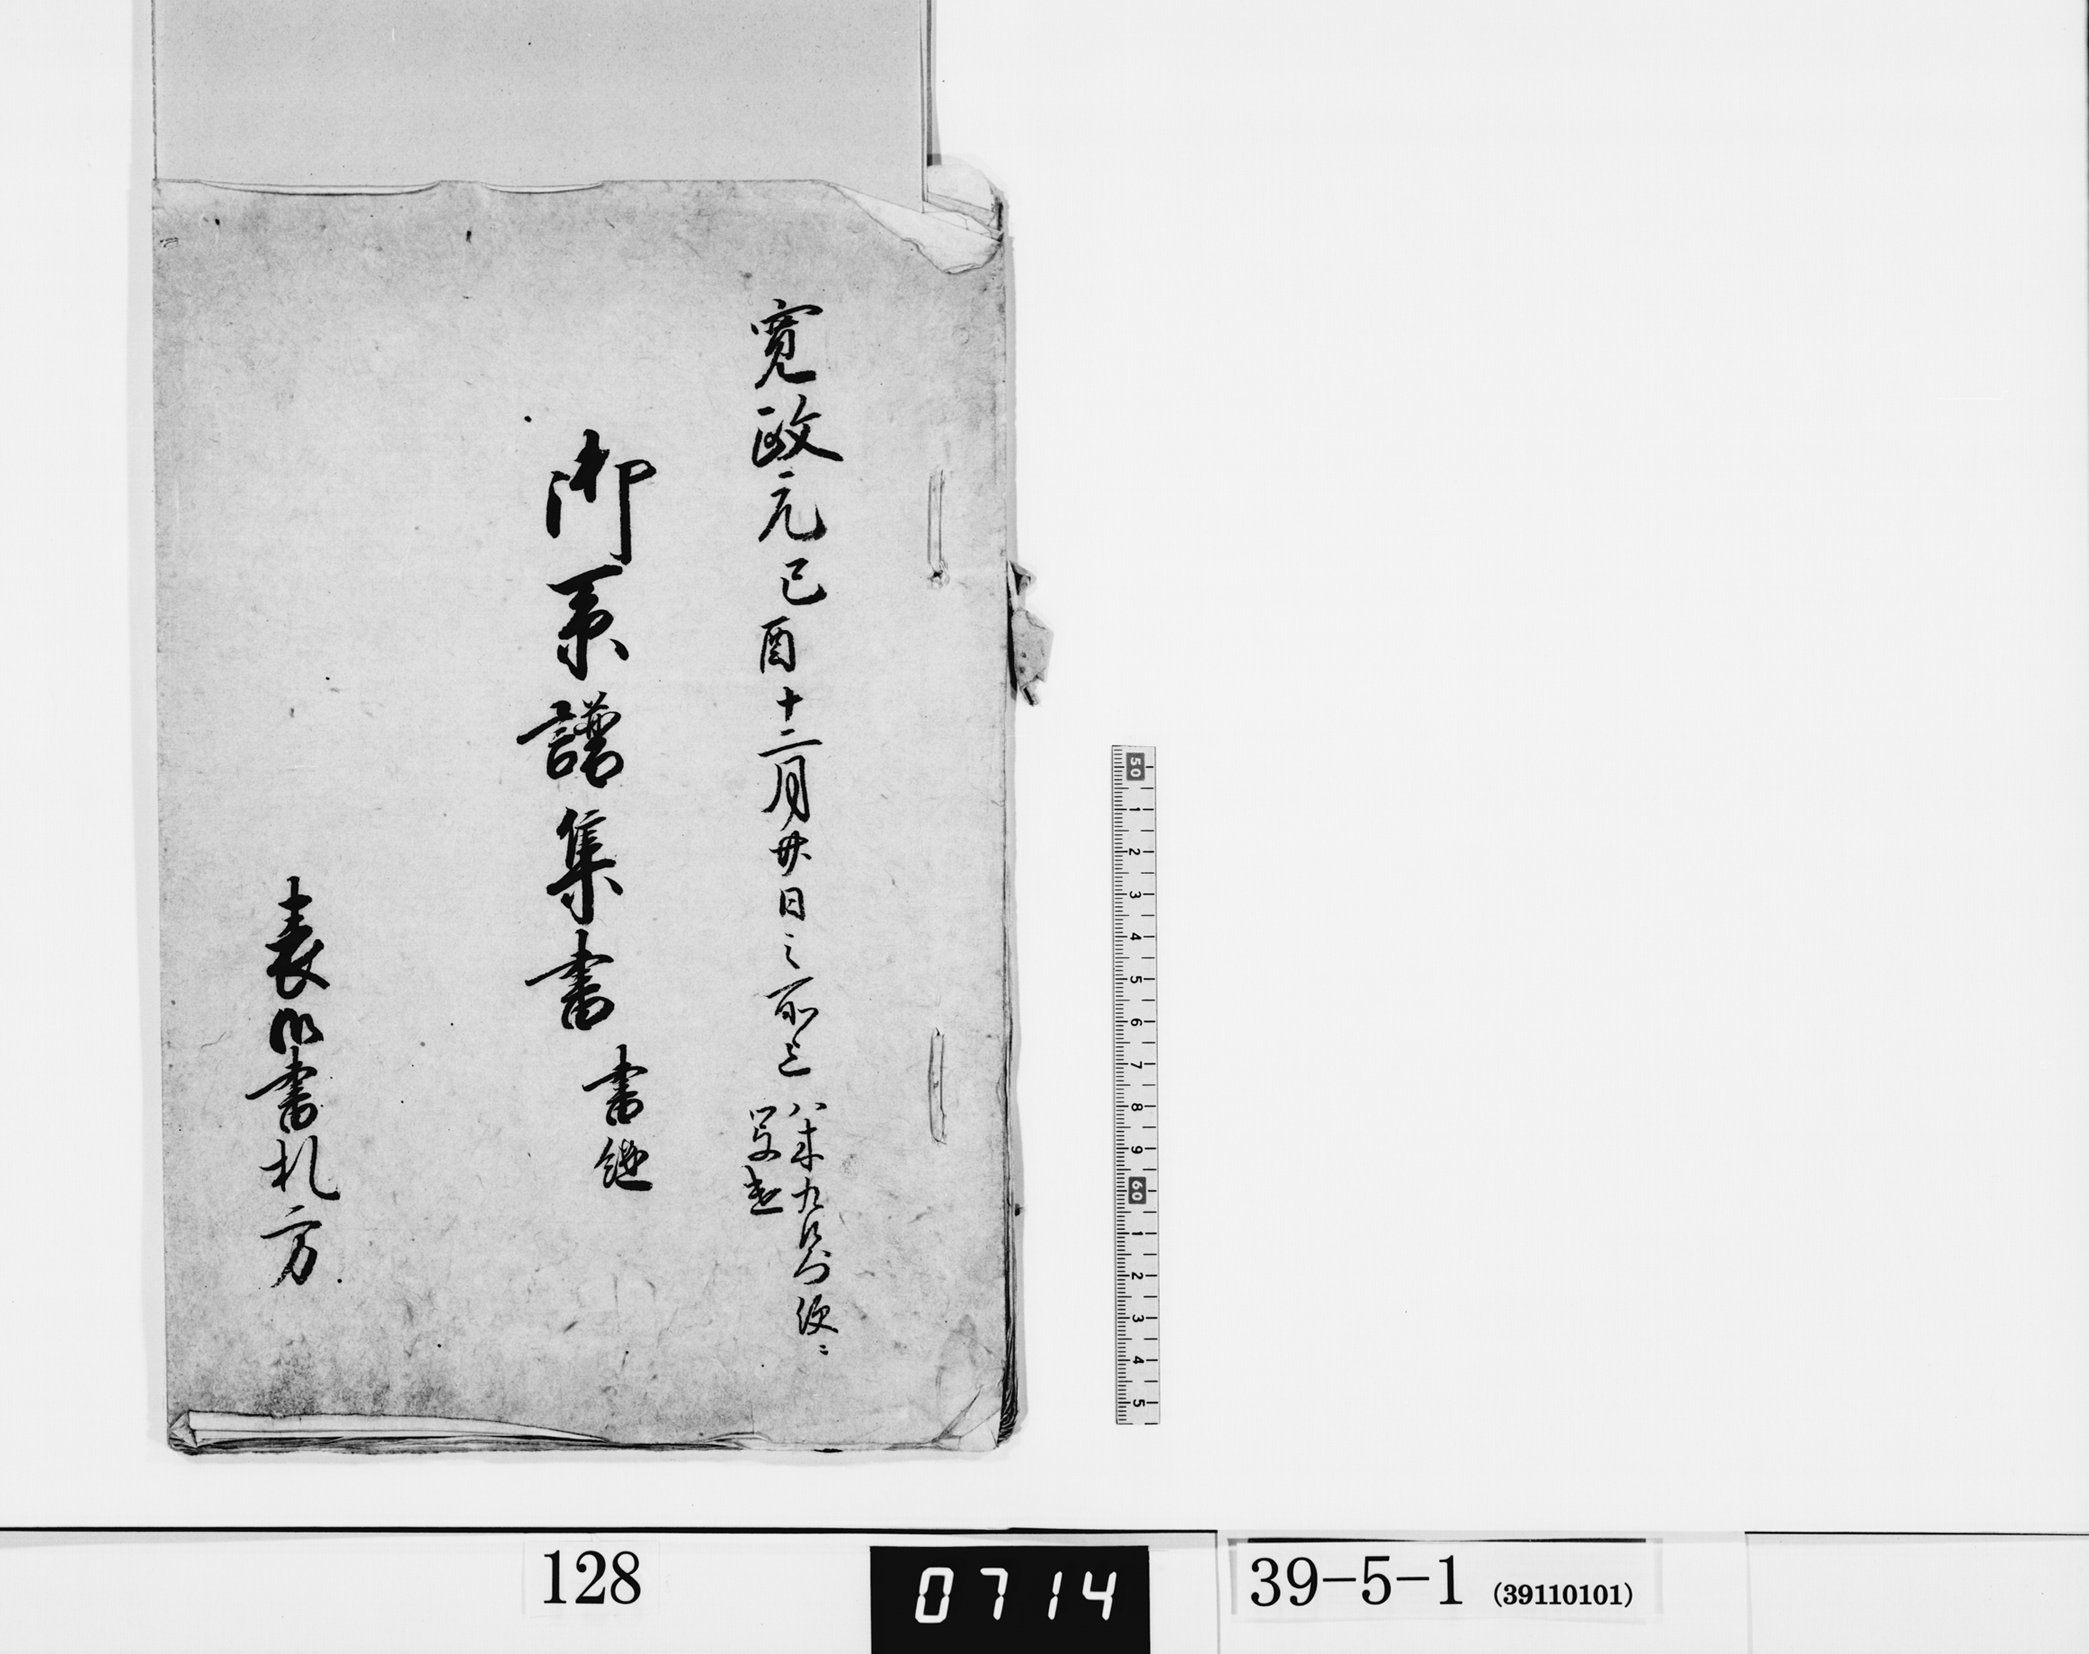 寛政元己酉十二月廿日之
御系譜集書 書継
表御書札方
50 1 2 3 4 5 6 7 8 9 60 1 2 3 4 5
128
0714
39-5-1 (39110101)